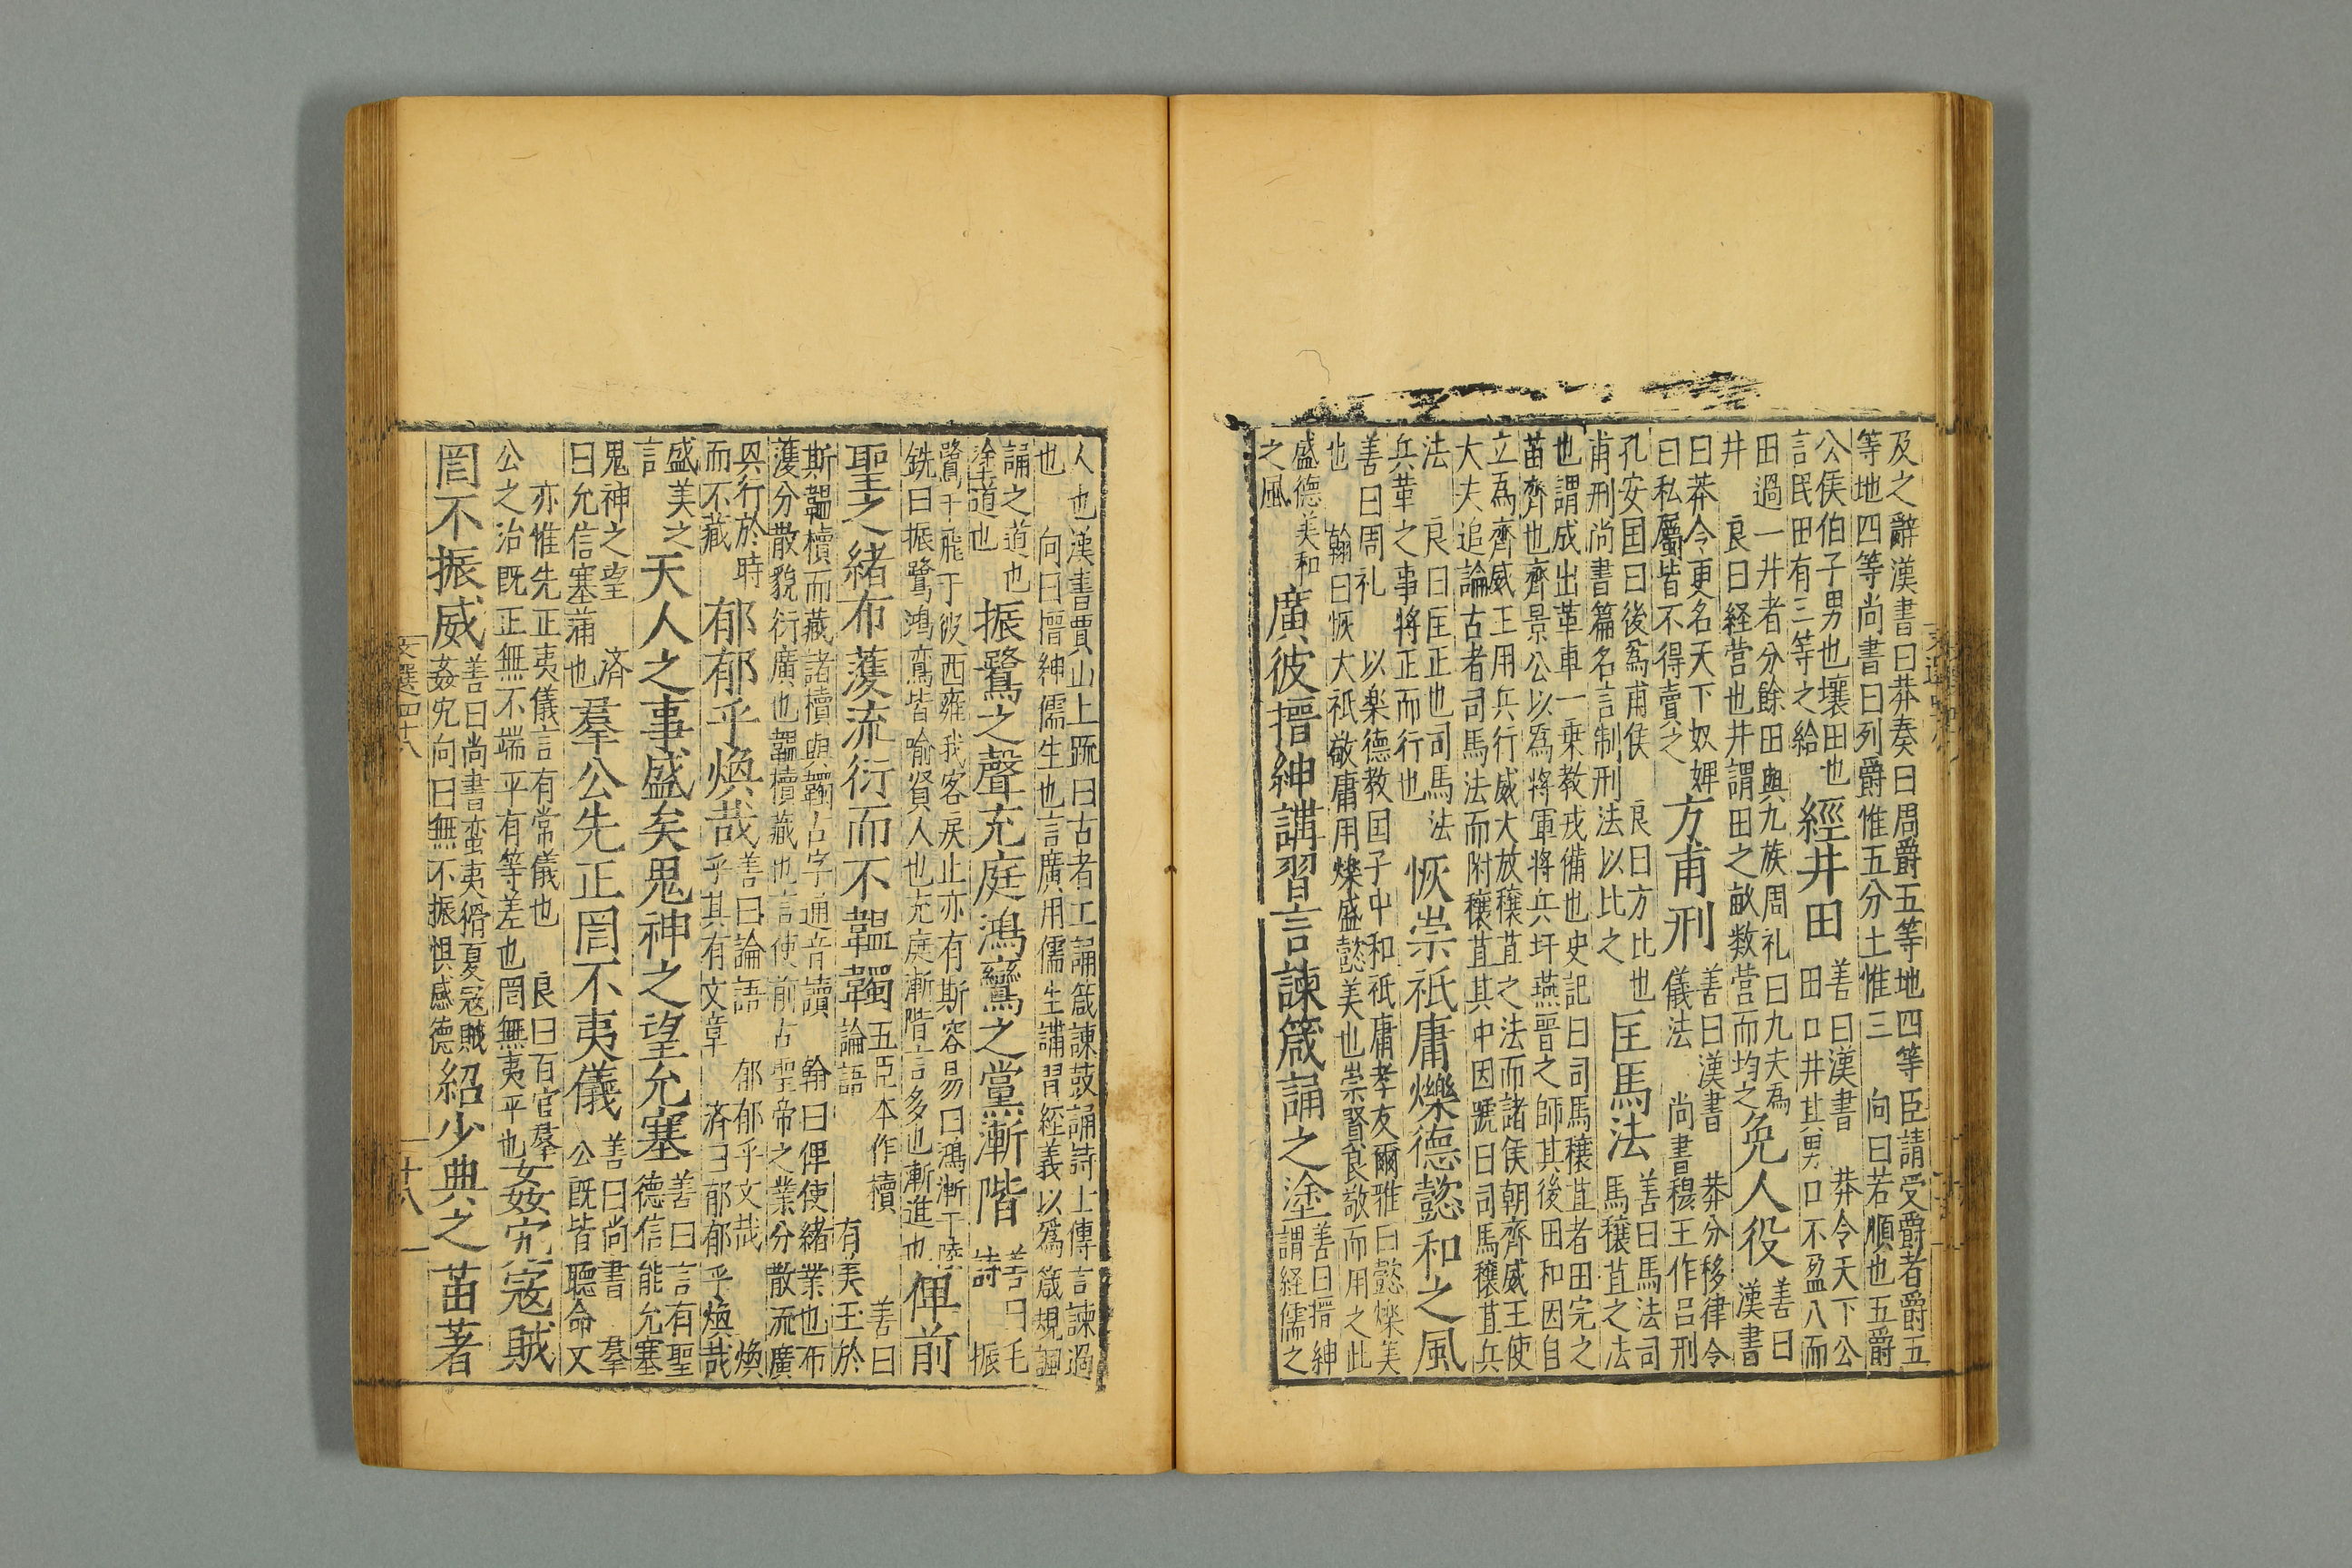 及之辭漢書曰莽奏曰周爵五等地四等臣請受爵者爵五
等地四等尚書曰列爵惟五分土惟三 向曰若順也五爵
公侯伯子男也壤田也
言民田有三等之給
經井田
善曰漢書 莽令天下公
田口井其男口不盈八而
田過一井者分餘田與九族周礼曰九夫為
井 良曰経营也井謂田之畝数营而均之
免人役
善曰
漢書
曰莽令更名天下奴婢
曰私屬皆不得賣之
方甫刑
善曰漢書 莽分移律令
儀法 尚書穆王作吕刑
孔安国曰後為甫侯 良曰方比也
甫刑尚書篇名言制刑法以比之
匡馬法
善曰馬法司
馬穰苴之法
也謂成出革車一乗教戎備也史記曰司馬穰苴者田完之
苗齊也齊景公以為将軍将兵扞燕晋之師其後田和因自
立為齊威王用兵行威大放穰苴之法而諸侯朝齊威王使
大夫追論古者司馬法而附穰苴其中因號曰司馬穰苴兵
法 良曰匡正也司馬法
兵革之事将正而行也
恢崇祇庸爍德懿和之風
善曰周礼 以楽德教国子中和祇庸孝友爾雅曰懿爍美
也 翰曰恢大祇敬庸用爍盛懿美也崇賢良敬而用之此
盛德美和
之風
廣彼搢紳講習言諫箴誦之塗
善曰搢紳
謂経儒之
人也漢書賈山上疏曰古者工誦箴諫鼓誦詩士傳言諫過
也 向曰搢紳儒生也言廣用儒生講習経義以為箴規諷
誦之道也
塗道也
振鷺之聲充庭鴻鸞之黨漸階
善曰毛
詩 振
鷺于飛于彼西雍我客戾止亦有斯容易曰鴻漸于陸
銑曰振鷺鴻鸞皆喻賢人也充庭漸階言多也漸進也
俾前
聖之緒布濩流衍而不韞韣
五臣本作櫝 善曰
論語 有美玉於
斯韞櫝而藏諸櫝與韣古字通音讀 翰曰俾使緒業也布
濩分散貌衍廣也韞櫝藏也言使前古聖帝之業分散流廣
與行於時
而不藏
郁郁乎煥哉
善曰論語 郁郁乎文哉 煥
乎其有文章 済曰郁郁乎煥哉
盛美之
言
天人之事盛矣鬼神之望允塞
善曰言有聖
德信能允塞
鬼神之望 済
曰允信塞蒲也
羣公先正罔不夷儀
善曰尚書 羣
公既皆聽命文
亦惟先正夷儀言有常儀也 良曰百官羣
公之治既正無不端平有等差也罔無夷平也
姦宄寇賊
罔不振威
善曰尚書蛮夷猾夏寇賊
姦宄向曰無不振惧威德
紹少典之苗著
文選四十八
十八